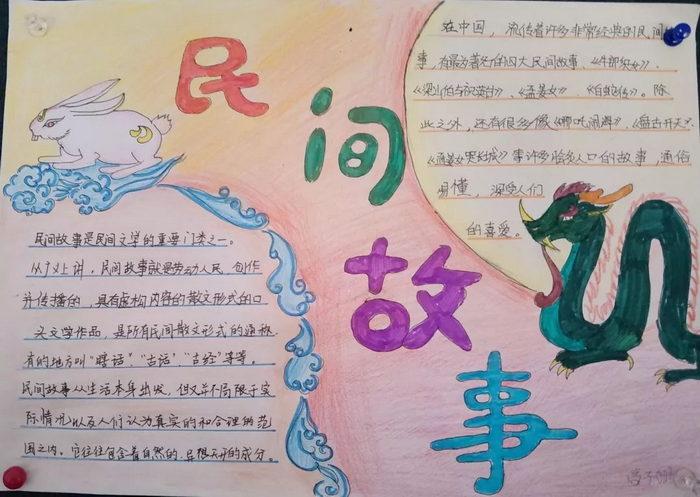 民间故事
在中国，流传着许多非常经典的民间故
事，有最为著名的四大民间故事、《牛郎织女》、
《梁山伯与祝英台》、《孟姜女》《白蛇传》。除
此之外，还有很多像《哪吒闹海》、《盘古开天》、
《孟姜女哭长城》等许多脍炙人口的故事，通俗
易懂，深受人们
的喜爱。
民间故事是民间文学的重要门类之一。
从广义上讲，民间故事就是劳动人民，创作
并传播的，具有虚构内容的散文形式的口
头文学作品，是所有民间散文形式的通称
有的地方叫“瞎话”、“古话”、“古经”等等。
民间故事从生活本身出发，但又并不局限于实
际情况以及人们认为真实的和合理的范
围之内。它往往包含着自然的、异想天开的成分。